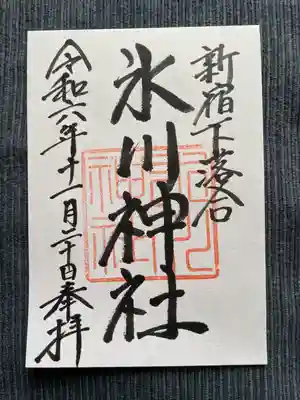 新宿下落合
氷川神社
令和六年十一月二十四日奉拝